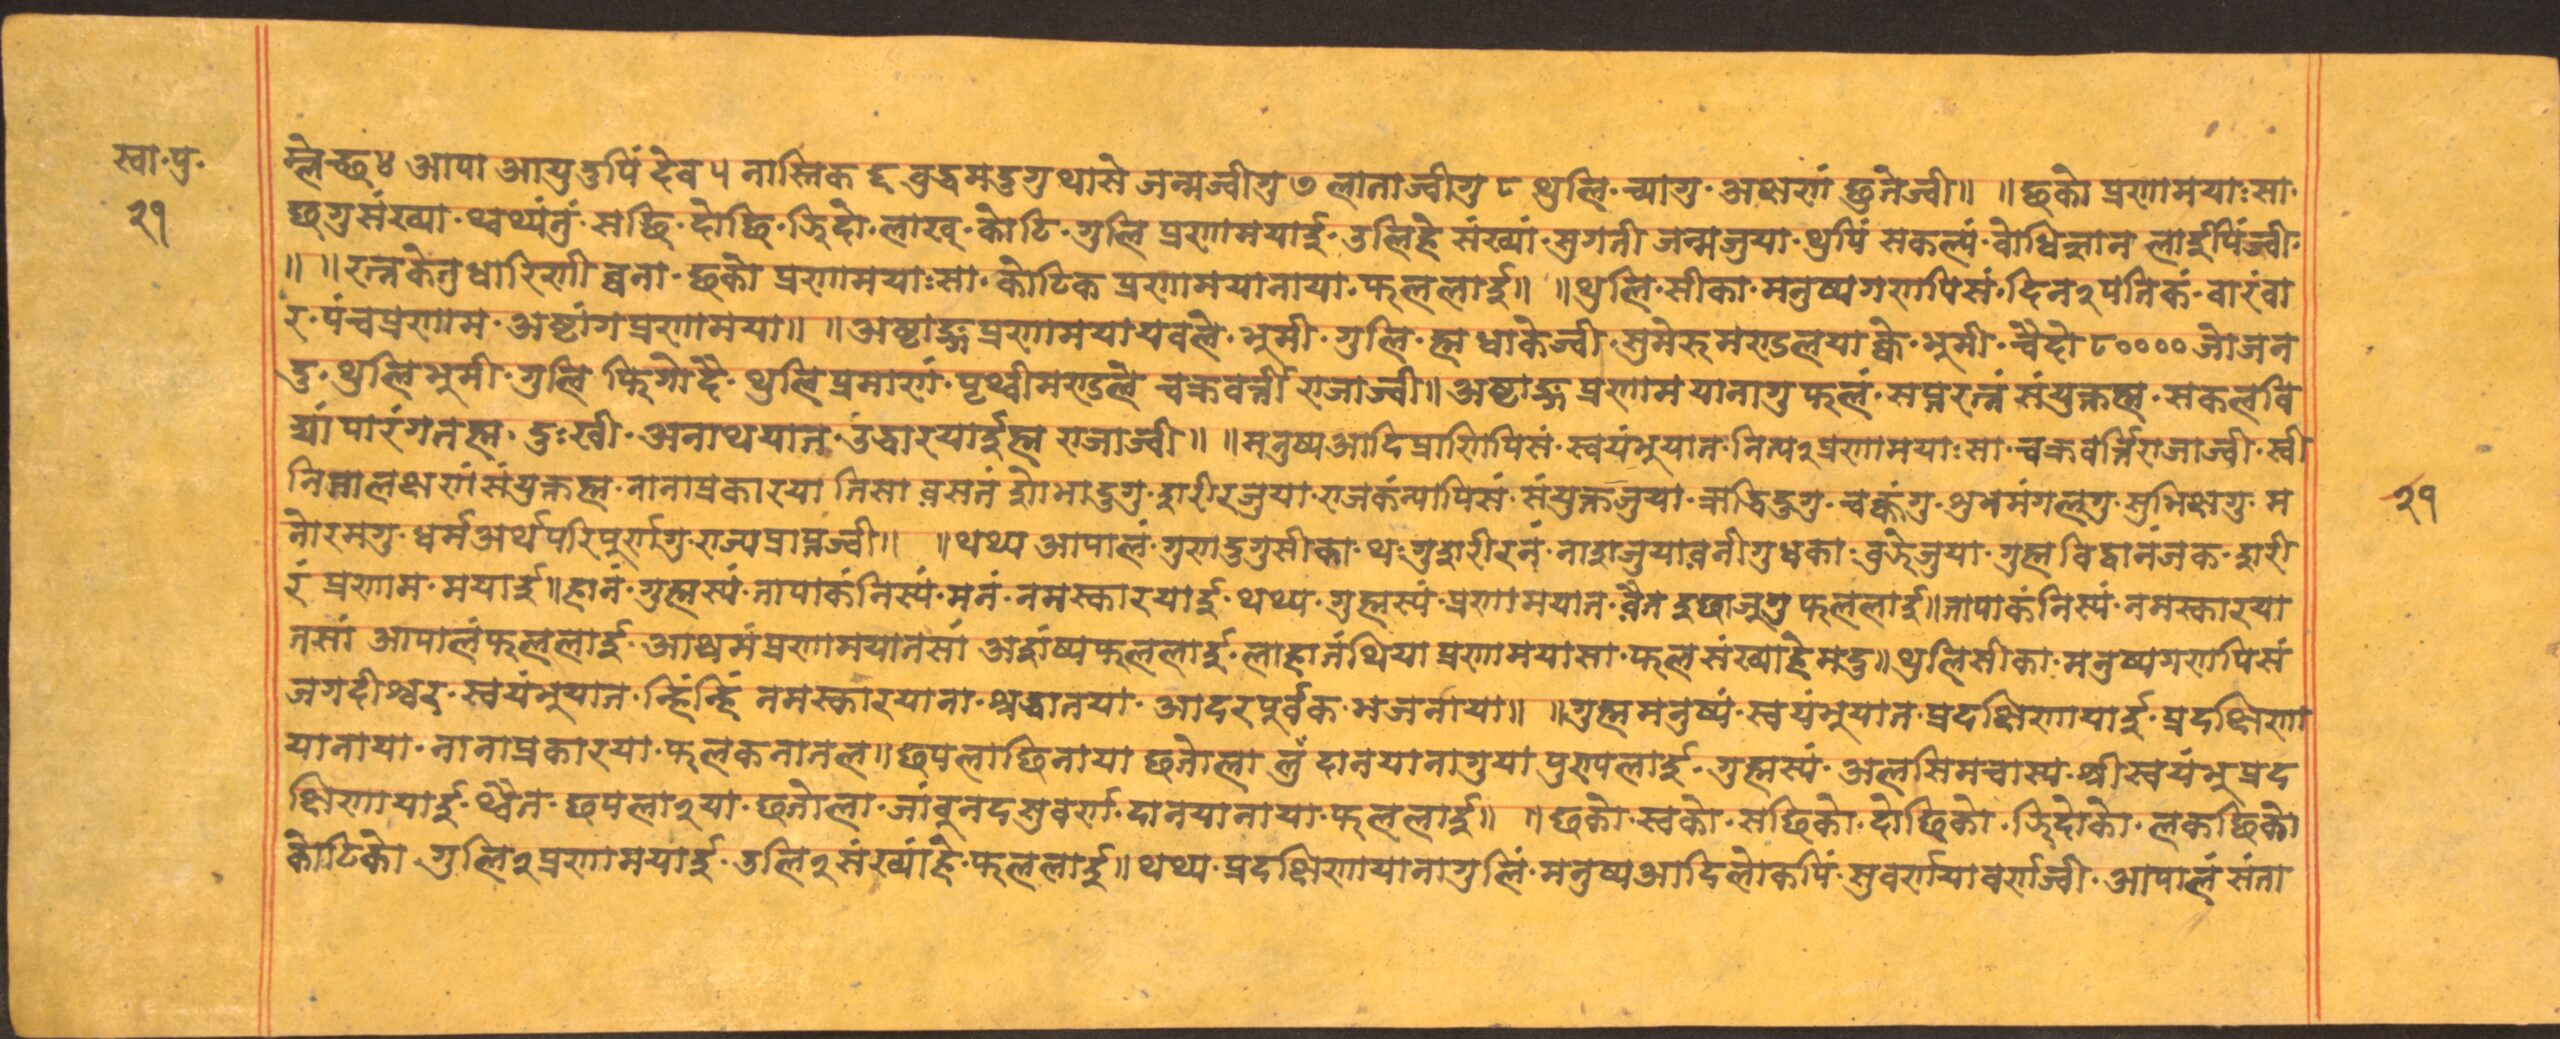 स्वा॰पु॰
२१
म्लेच्छ ४ आपा आयुदुपिं देव ५ नास्तिक दृ बुद्धमदुगु थासे जन्मज्वीगु ७ लाताज्वीगु ८ थुलि॰च्यागु॰अक्षणं छुतेज्वी॥ ॥छको प्रणामयाःसा॰
छगुसंख्या॰थ्वथ्यंतुं॰सछि॰दोछि॰झिदो॰लाख्॰कोटि॰गुलि प्रणामयाई॰उलिहे संख्यां॰सुगती जन्मजुया॰थुपिं सकल्यं॰बोधिज्ञान लाईपिंज्वी॰
॥ ॥रत्नकेतुधारिणी ब्वना॰छको प्रणामयाःसा॰कोटिक प्रणामयानाया॰फललाई॥ ॥थुलि॰सीका॰मनुष्यगणपिसं॰दिन२पतिकं॰वारंवा
र॰पंचप्रणाम॰अष्टांगप्रणामया॥ ॥अष्टाङ्गप्रणामयायवले॰भूमी॰गुलि॰ह्म धाकेज्वी॰सुमेरुमण्डलयाक्वे॰भूमी॰च्वैदो ८०००० जोजन
दु॰थुलिभूमी॰गुलि फिगोदै॰थुलिप्रमाणं॰पृथ्वीमण्डले चक्रवर्त्ती राजाज्वी॥अष्टाङ्गप्रणामयानागु फलं॰सप्तरत्नं संयुक्तह्म॰सकलवि
द्यां पारंगतह्म॰दुःखी॰अनाथयात॰उद्धारयाईह्म राजाज्वी॥ ॥मनुष्यआदिप्राणिपिसं॰स्वयंभुयात॰नित्य२प्रणामयाःसा॰चक्रवर्त्तिराजाज्वी॰स्वी
निता लक्षणं संयुक्तह्म॰नानाप्रकारया तिसा वसतं शोभादुगु॰शरीरजुया॰राजकंन्यापिसं॰संयुक्तजुया॰ऋद्धिदुगु॰च्वक्कंगु॰शुभमंगलगु॰सुभिक्षगु॰म
नोरमगु॰धर्मअर्थपरिपूर्णगु॰राज्यप्राप्तज्वी॥ ॥थथ्य आपालं॰गुणदुगुसीका॰थःगुशरीरनं॰नाशजुयावनीगुधका॰बुझेजुया॰गुह्म विद्वानंजक॰शरी
रं प्रणाम॰मयाई॥हानं॰गुह्मस्यं॰तापाकंनिस्यं॰मनं॰नमस्कारयाई॰थथ्य॰गुह्मस्यं॰प्रणामयात॰वैत इछाजुगु फललाई॥तापाकंनिस्यं॰नमस्कारया
तसां आपालंफललाई॰आथ्यमंप्रणामयातसां अङ्गंष्यफललाई॰लाहातंथिया प्रणामयासा॰फलसंख्याहेमदु॥थुलिसीका॰मनुष्यगणपिसं
जगदीश्वर॰स्वयंभुयात॰न्हिंन्हिं नमस्कारयाना॰श्रद्धानया॰आदरपूर्वक॰भजनाया॥ ॥गुह्ममनुष्यं॰स्वयंभुयात॰प्रदक्षिणायाई॰प्रदक्षिणा
यानाया॰नानाप्रकारया॰फलकनातल॥छपलाछिनाया छतोला लुं दानयानागुया पुण्यलाई॰गुह्मस्यं॰अलसिमचास्य॰श्रीस्वयंभु प्रद
क्षिणायाई॰थ्वैत॰छपला२या॰छतोला॰जांबुनदसुवर्ण॰दानयानाया॰फललाई॥ ॥छको॰स्वको॰सछिको॰दोछिको॰झिदोको॰लकछिको
कोटिको गुलि२प्रणामयाई॰उलि२संख्यांहे॰फललाई॥थथ्य॰प्रदक्षिणायानागुलिं॰मनुष्यआदिलोकपिं॰सुवर्णयावर्णज्वी॰आपालं संता
२१